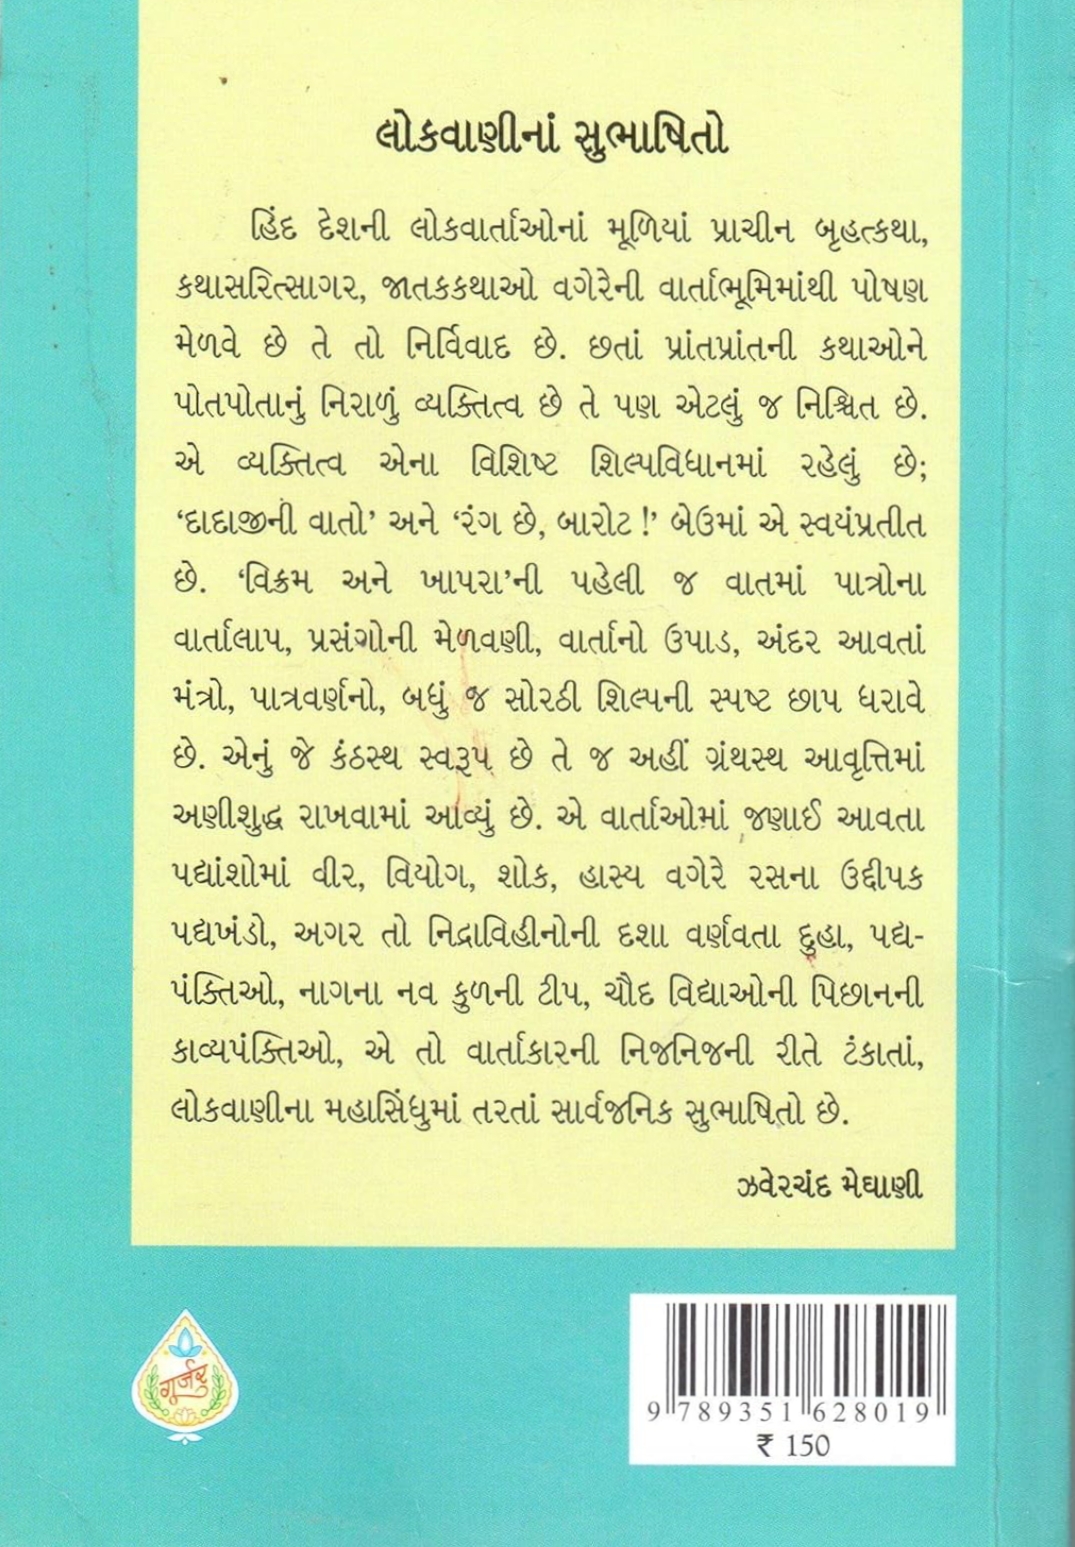 લોકવાણીનાં સુભાષિતો
હિંદ દેશની લોકવાર્તાઓનાં મૂળિયાં પ્રાચીન બૃહત્કથા,
કથાસરિત્સાગર, જાતકકથાઓ વગેરેની વાર્તાભૂમિમાંથી પોષણ
મેળવે છે તે તો નિર્વિવાદ છે. છતાં પ્રાંતપ્રાંતની કથાઓને
પોતપોતાનું નિરાળું વ્યક્તિત્વ છે તે પણ એટલું જ નિશ્ચિત છે.
એ વ્યક્તિત્વ એના વિશિષ્ટ શિલ્પવિધાનમાં રહેલું છે;
‘દાદાજીની વાતો’ અને ‘રંગ છે, બારોટ !’ બેઉમાં એ સ્વયંપ્રતીત
છે. ‘વિક્રમ અને ખાપરા’ની પહેલી જ વાતમાં પાત્રોના
વાર્તાલાપ, પ્રસંગોની મેળવણી, વાર્તાનો ઉપાડ, અંદર આવતાં
મંત્રો, પાત્રવર્ણનો, બધું જ સોરઠી શિલ્પની સ્પષ્ટ છાપ ધરાવે
છે. એનું જે કંઠસ્થ સ્વરૂપ છે તે જ અહીં ગ્રંથસ્થ આવૃત્તિમાં
અણીશુદ્ધ રાખવામાં આવ્યું છે. એ વાર્તાઓમાં જણાઈ આવતા
પદ્યાંશોમાં વીર, વિયોગ, શોક, હાસ્ય વગેરે રસના ઉદ્દીપક
પદ્યખંડો, અગર તો નિદ્રાવિહીનોની દશા વર્ણવતા દુહા, પદ્ય-
પંક્તિઓ, નાગના નવ કુળની ટીપ, ચૌદ વિદ્યાઓની પિછાનની
કાવ્યપંક્તિઓ, એ તો વાર્તાકારની નિજનિજની રીતે ટંકાતાં,
લોકવાણીના મહાસિંધુમાં તરતાં સાર્વજનિક સુભાષિતો છે.
ઝવેરચંદ મેઘાણી
ગૂર્જર
9 789351 628019
₹ 150